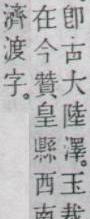 卽古大陸澤。玉裁
在今贊皇縣西南
濟渡字。